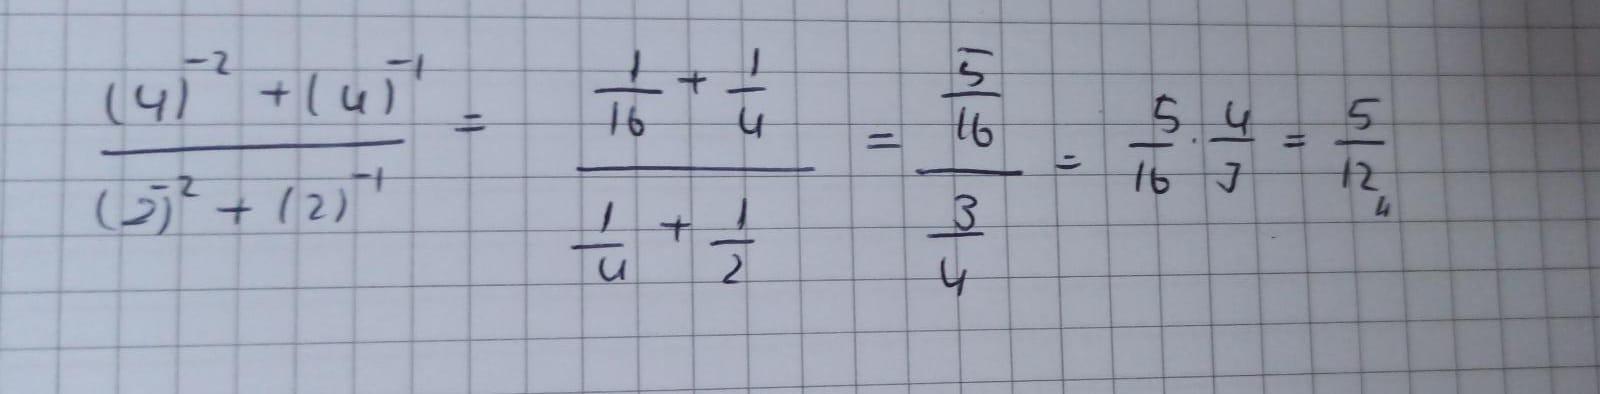 (4)⁻² + (4)⁻¹ / (2)⁻² + (2)⁻¹ = 1/16 + 1/4 / 1/4 + 1/2 = 5/16 / 3/4 = 5/16 · 4/3 = 5/12 "